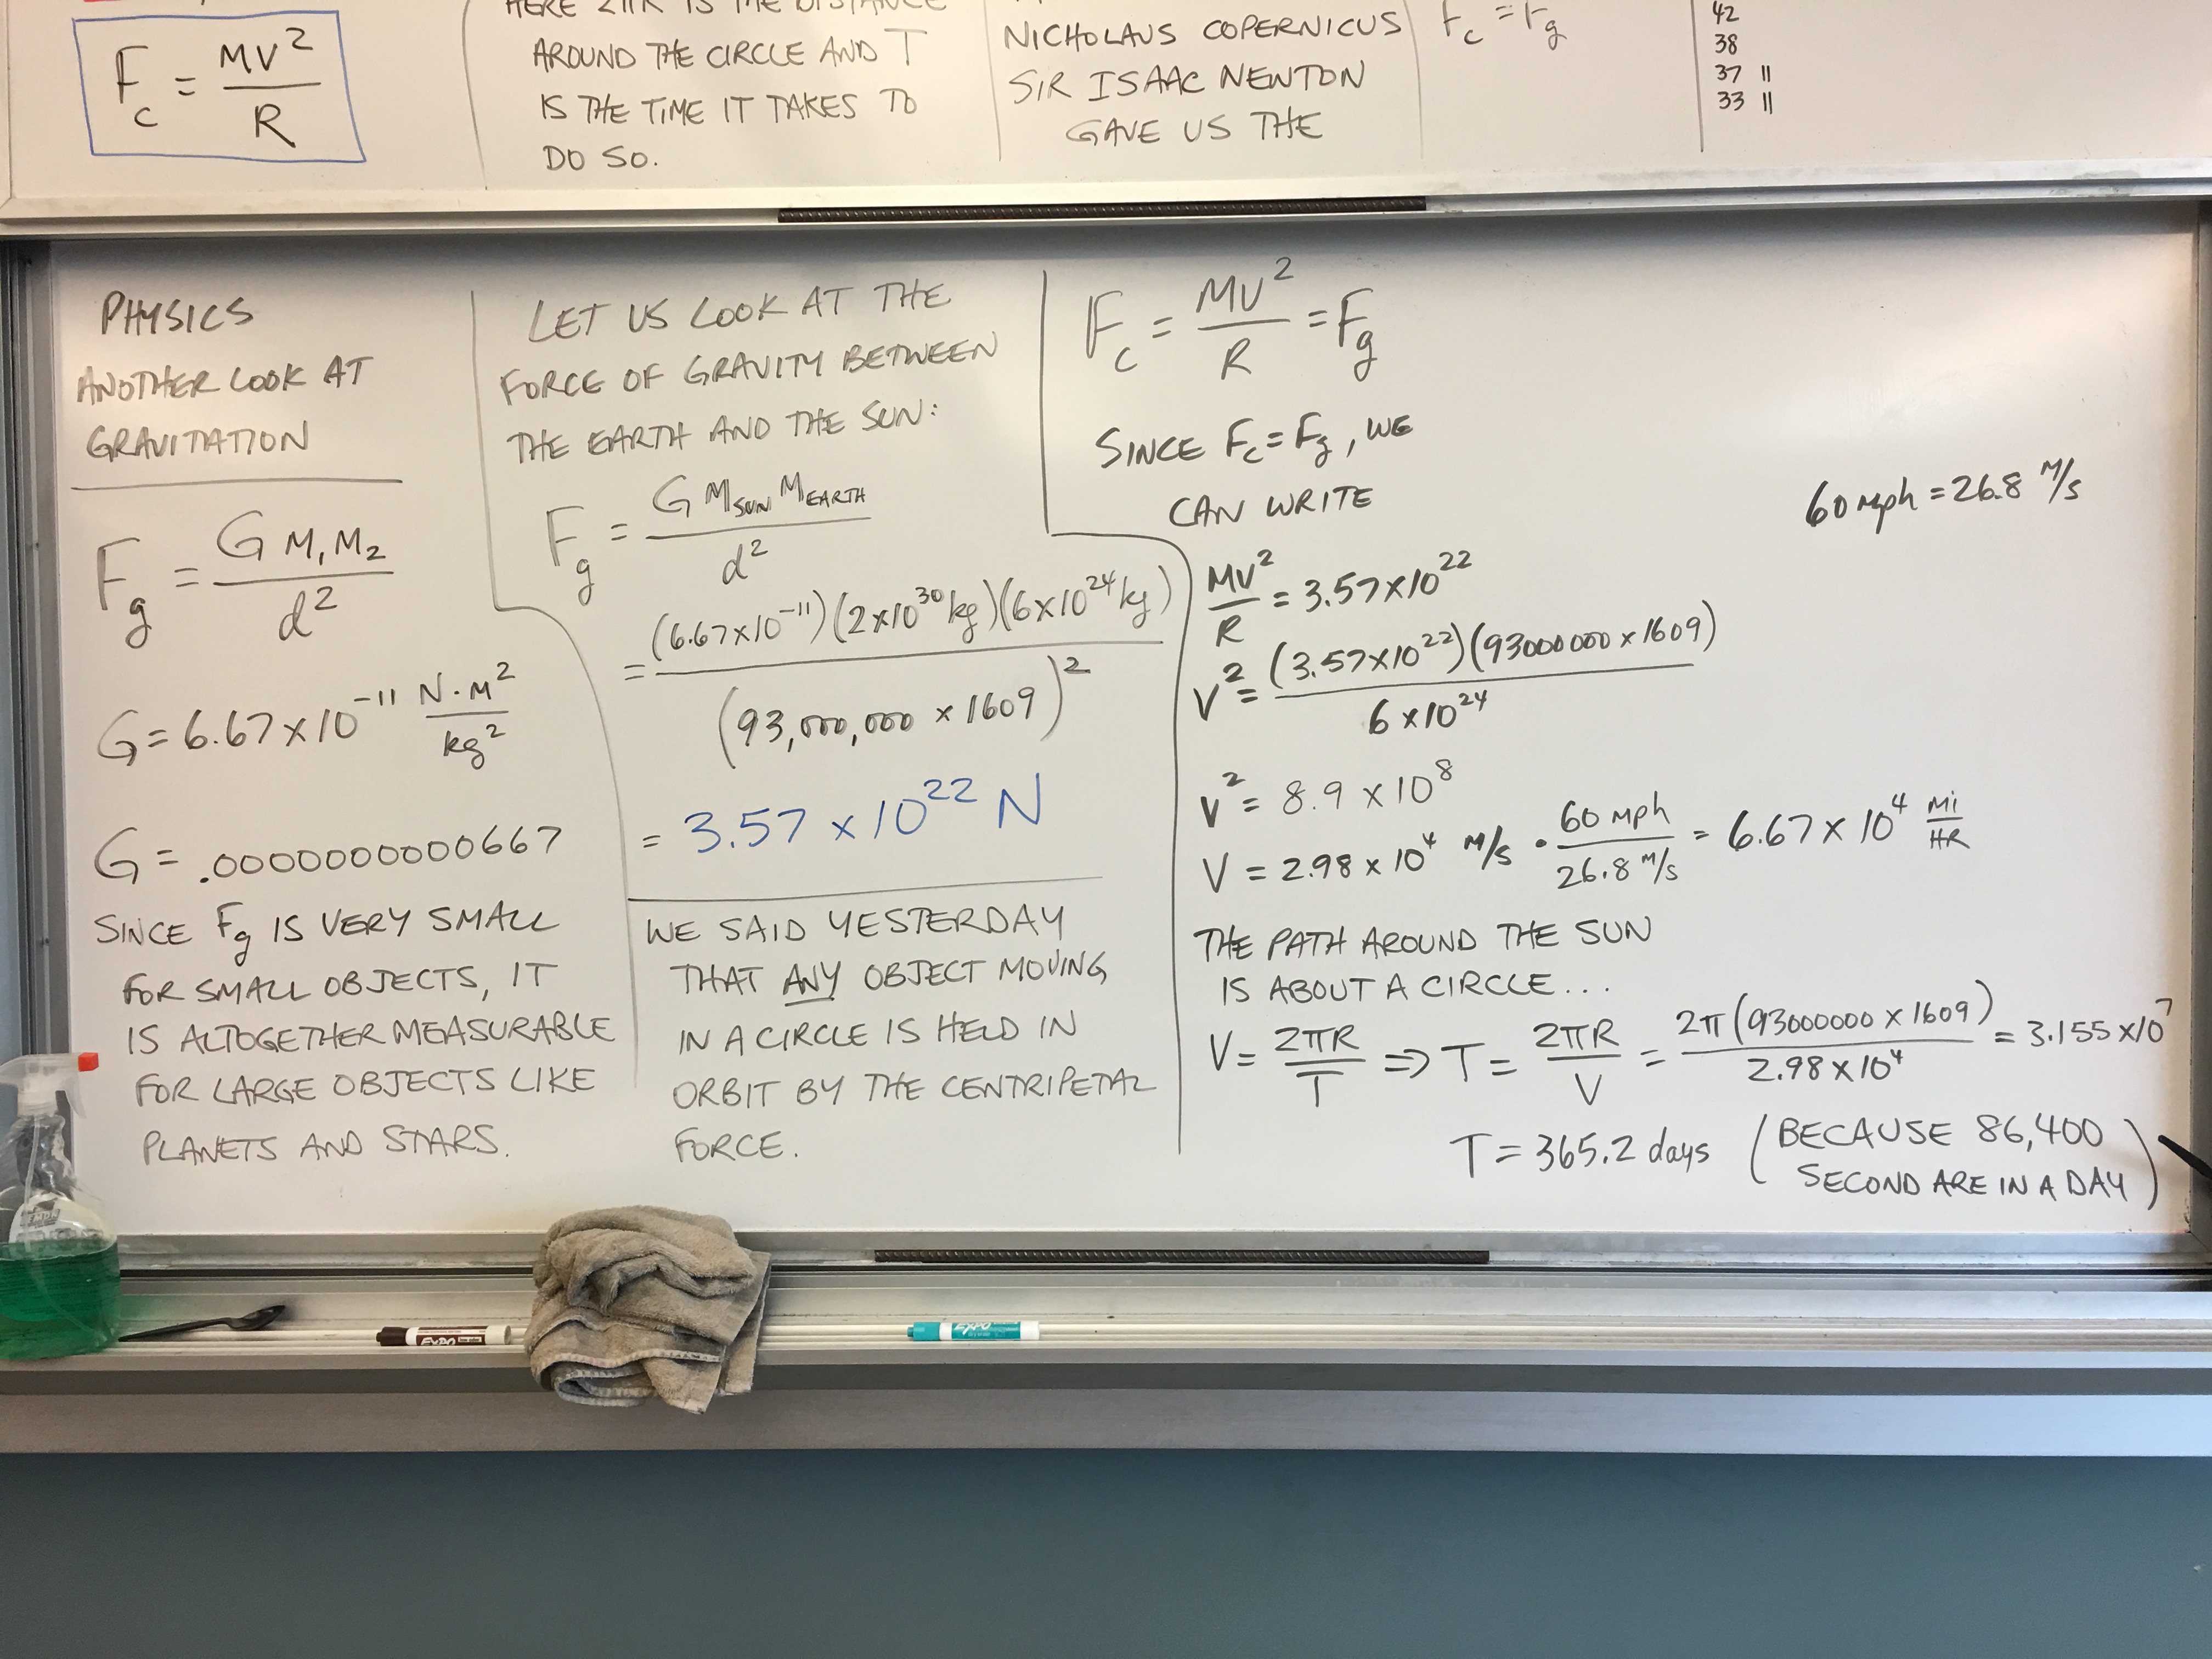 F_c = MV²/R
HERE 2πR IS THE DISTANCE
AROUND THE CIRCLE AND T
IS THE TIME IT TAKES TO
DO SO.
NICHOLAUS COPERNICUS
SIR ISAAC NEWTON
GAVE US THE
F_c = F_g
42
38
37 ||
33 ||
PHYSICS
ANOTHER LOOK AT
GRAVITATION
F_g = G M₁M₂/d²
G = 6.67 x 10⁻¹¹ N·M²/kg²
G = .0000000000667
SINCE F_g IS VERY SMALL
FOR SMALL OBJECTS, IT
IS ALTOGETHER MEASURABLE
FOR LARGE OBJECTS LIKE
PLANETS AND STARS.
LET US LOOK AT THE
FORCE OF GRAVITY BETWEEN
THE EARTH AND THE SUN:
F_g = G M_SUN M_EARTH/d²
= (6.67x10⁻¹¹)(2x10³⁰kg)(6x10²⁴kg)/(93,000,000 x 1609)²
= 3.57 x 10²² N
WE SAID YESTERDAY
THAT ANY OBJECT MOVING
IN A CIRCLE IS HELD IN
ORBIT BY THE CENTRIPETAL
FORCE.
F_c = MV²/R = F_g
SINCE F_c = F_g, WE
CAN WRITE
MV²/R = 3.57x10²²
V² = (3.57x10²²)(93000000 x 1609)/6x10²⁴
V² = 8.9 x 10⁸
V = 2.98 x 10⁴ M/s · 60 mph/26.8 M/s = 6.67 x 10⁴ Mi/HR
THE PATH AROUND THE SUN
IS ABOUT A CIRCLE...
V = 2πR/T => T = 2πR/V = 2π(93000000 x 1609)/2.98x10⁴ = 3.155 x10⁷
T = 365.2 days (BECAUSE 86,400
SECOND ARE IN A DAY)
60 mph = 26.8 M/s
EXPO
EXPO